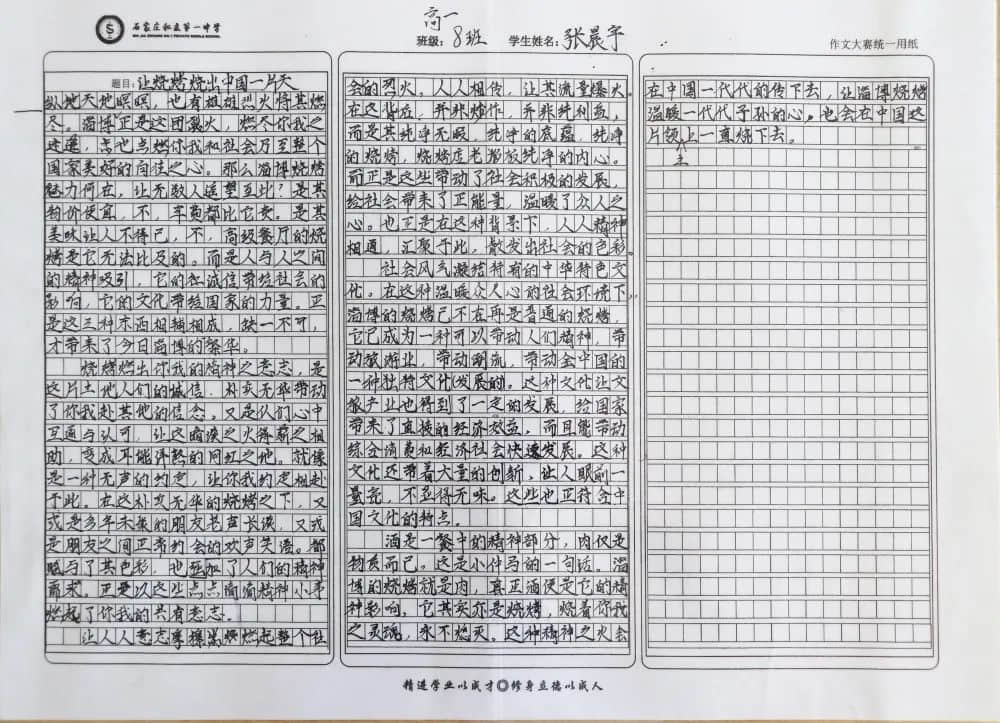 石家庄私立第一中学
高一
班级：8班 学生姓名：张晨宇
作文大赛统一用纸
题目：让烧烤烧出中国一片天
纵地天地暝暝，也有雄雄烈火将其燃
尽。淄博正是这团烈火，燃尽你我之
也点燃你我和社会乃至整个
国家美好的向往之心。那么淄博烧烤
魅力何在，让无数人遥望至此？是其
物价便宜，不，车费都比它贵。是其
美味让人不得已，不，高级餐厅的烧
烤是它无法比及的。而是人与人之间
的精神吸引，它的社诚信带给社会的
影响，它的文化带给国家的力量。正
是这三种东西相辅相成，缺一不可，
才带来了今日淄博的繁华。
烧烤燃出你我的精神之意志，是
这片土地人们的诚信，朴实无华带动
了你我赴其他的信念。又是人们心中
互通与认可，让这暗淡之火得薪之相
助，变成耳能详熟的网红之地。就像
是一种无声的约定，让你我约定相赴
于此。在这朴实无华的烧烤之下，又
或是多年未案的朋友老声长谈，又或
是朋友之间正常约会的欢声笑语。都
赋与了其色彩，也添加了人们的精神
需求。正是以这些点点滴滴精神小事
燃起了你我的共有意志。
让人人意志摩擦点燃燃起整个社
会的烈火。人人相传，让其流量爆火。
在这背后，并非炒作，并非纯利益，
而是其纯净无暇，纯净的底蕴，纯净
的烧烤，烧烤店老板放纯净的内心。
而正是这些带动了社会积极的发展，
给社会带来了正能量，温暖了众人之
心。也正是在这种背景下，人人精神
相通，汇聚于此，散发出社会的色彩。
社会风气凝结特有的中华特色文
化。在这种温暖众人心的社会环境下，
淄博的烧烤已不在再是普通的烧烤，
它已成为一种可以带动人们精神，带
动旅游业，带动潮流，带动全中国的
一种独特文化发展的。这种文化让文
旅产业也得到了一定的发展，给国家
带来了直接的经济效益，而且能带动
综合消费和经济社会快速发展。这种
文化还带着大量的创新，让人眼前一
量亮，不显得无味。这些也正符合中
国文化的特点。
酒是一餐中的精神部分，肉仅是
物质而已。这是小仲马的一句话。淄
博的烧烤就是肉，真正酒便是它的精
神影响。它其实亦是烧烤，烧着你我
之灵魂，永不熄灭。这种精神之火会
在中国一代代的传下去，让淄博烧烤
温暖一代代子孙的心。也会在中国这
片领土上一直烧下去。
精进学业以成才 修身立德以成人